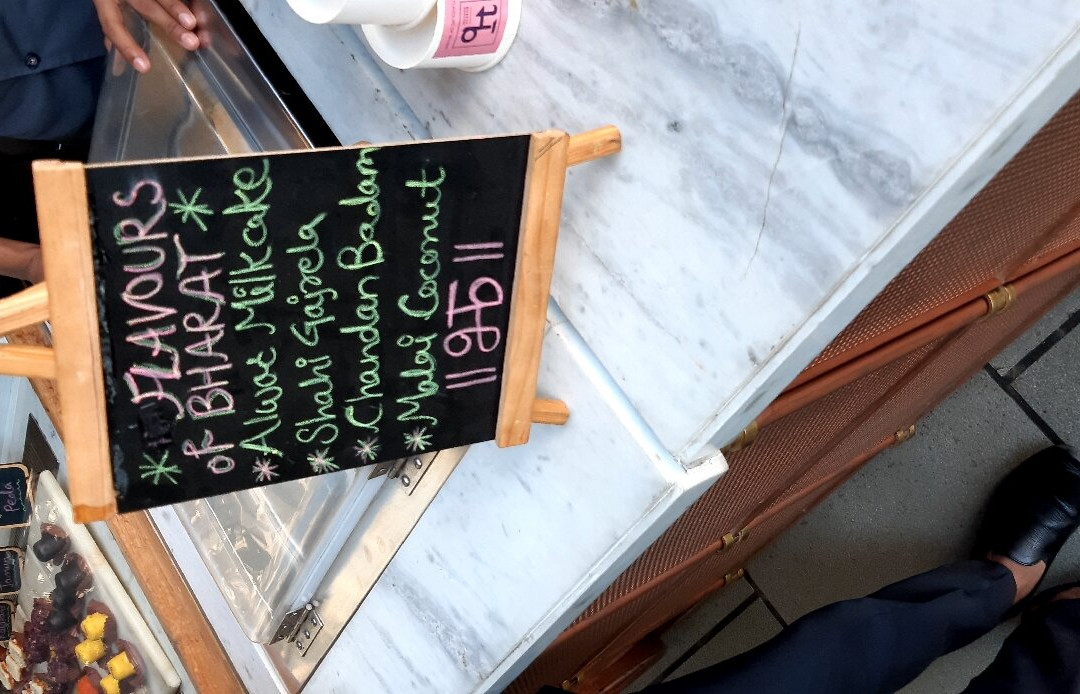 * FLAVOURS
OF BHARAT *
* Alwar Milkcake
* Shahi Gajrela
* Chandan Badam
* Malai Coconut
Peda